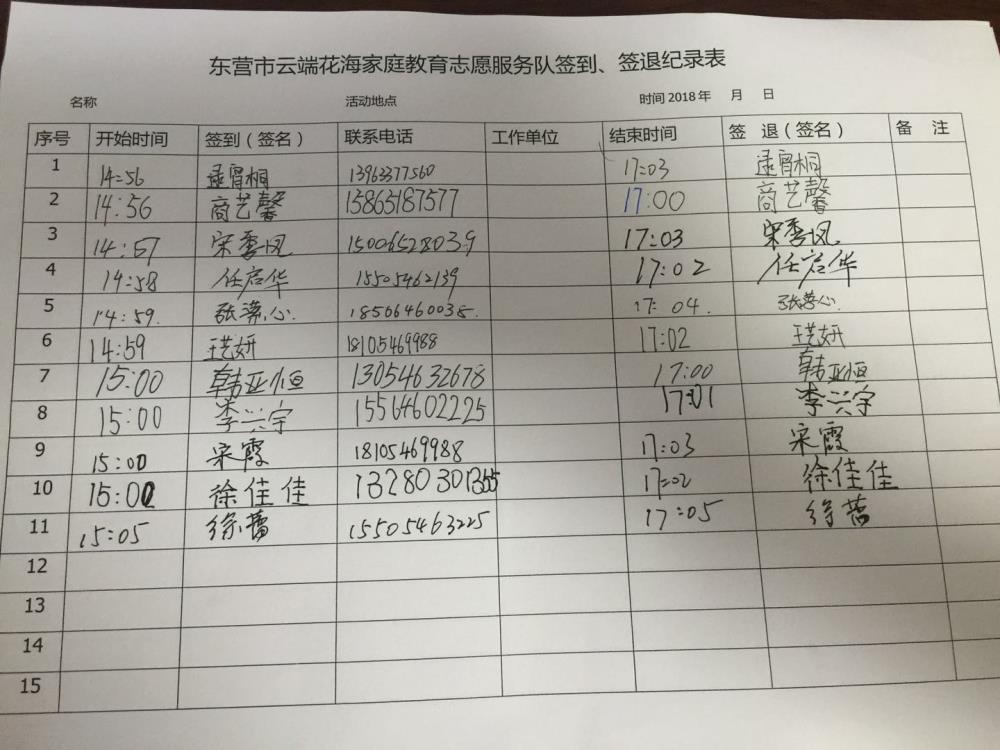 东营市云端花海家庭教育志愿服务队签到、签退纪录表
名称 活动地点 时间 2018 年 月 日
序号 开始时间 签到（签名） 联系电话 工作单位 结束时间 签 退（签名） 备 注
1 14:56 逯霄桐 13963377560 17:03 逯霄桐
2 14:56 商艺馨 15865187577 17:00 商艺馨
3 14:57 宋季风 15006528039 17:03 宋季风
4 14:58 任启华 15505462139 17:02 任启华
5 14:59. 张蕊心 18566460038. 17:04.
6 14:59 18105469988 17:02
7 15:00 韩亚恒 13054632678 17:00 韩亚恒
8 15:00 李兴宇 15564602225 17:01 李兴宇
9 15:00 宋霞 18105469988 17:03 宋霞
10 15:00 徐佳佳 17:02 徐佳佳
11 15:05 徐蕾 15505463225 17:05 徐蕾
12
13
14
15